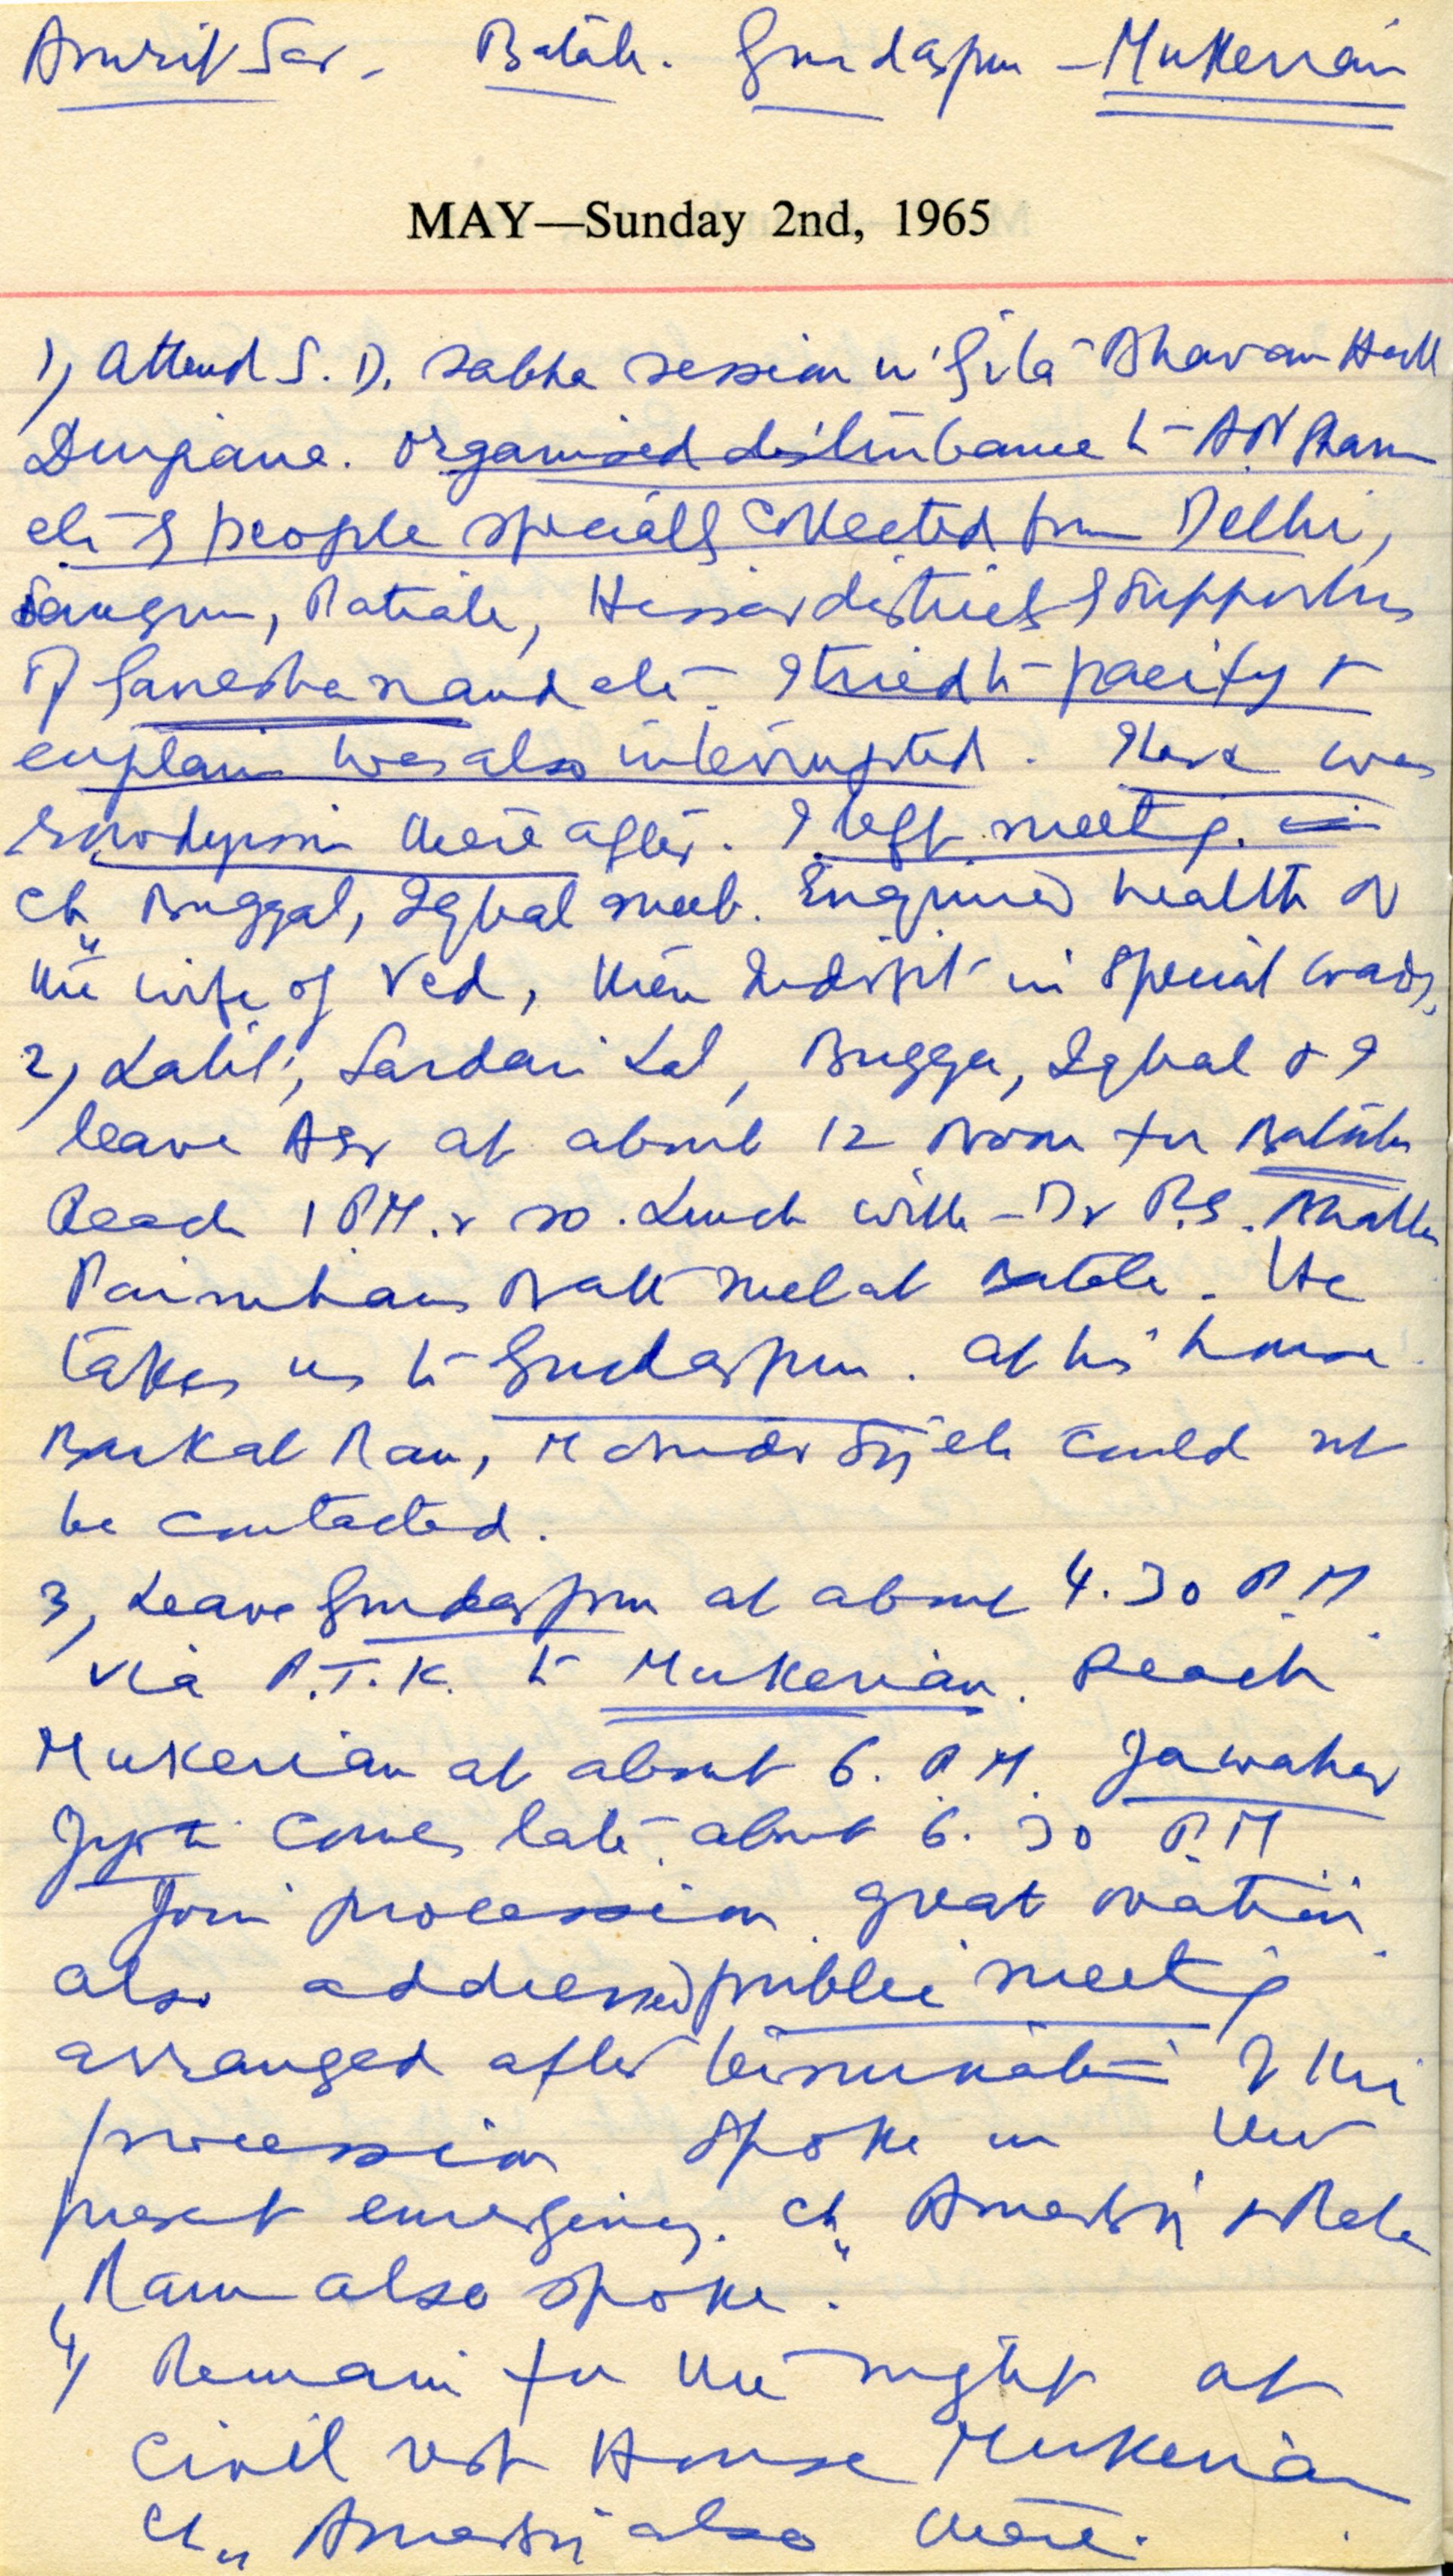 Amritsar - Batala. Gurdaspur - Mukerian
MAY—Sunday 2nd, 1965
1, Attend S. D. Sabha session in Gita Bhavan Hall
Durgiana. Organised disturbance to
people specially collected from Delhi,
Sangrur, Patiala, Hissar districts & supporters
of Ganeshanand etc. I tried to pacify &
explain was also interrupted. There was
thereafter. I left meeting.
Ch" Iqbal meet. Enquired health of
the wife of Ved, then in special ward.
2, Sardari Lal, Bugga, Iqbal & I
leave ASR at about 12 Noon for Batala
Reach 1 P.M. or so. Lunch with Dr
met at Batala. He
takes us to Gurdaspur. At his house
Barkat Ram, Mohinder Singh could not
be contacted.
3, Leave Gurdaspur at about 4.30 P.M.
via P.T.K. to Mukerian. Reach
Mukerian at about 6. P.M. Jawahar
Jyoti comes late about 6.30 P.M
Join procession. great ovation.
also addressed public meeting
arranged after termination of the
procession spoke in view
present emergency. Ch" Amar Singh & Rala
Ram also spoke.
4, Remain for the night at
Civil rest House Mukerian
Ch" Amar Singh also there.